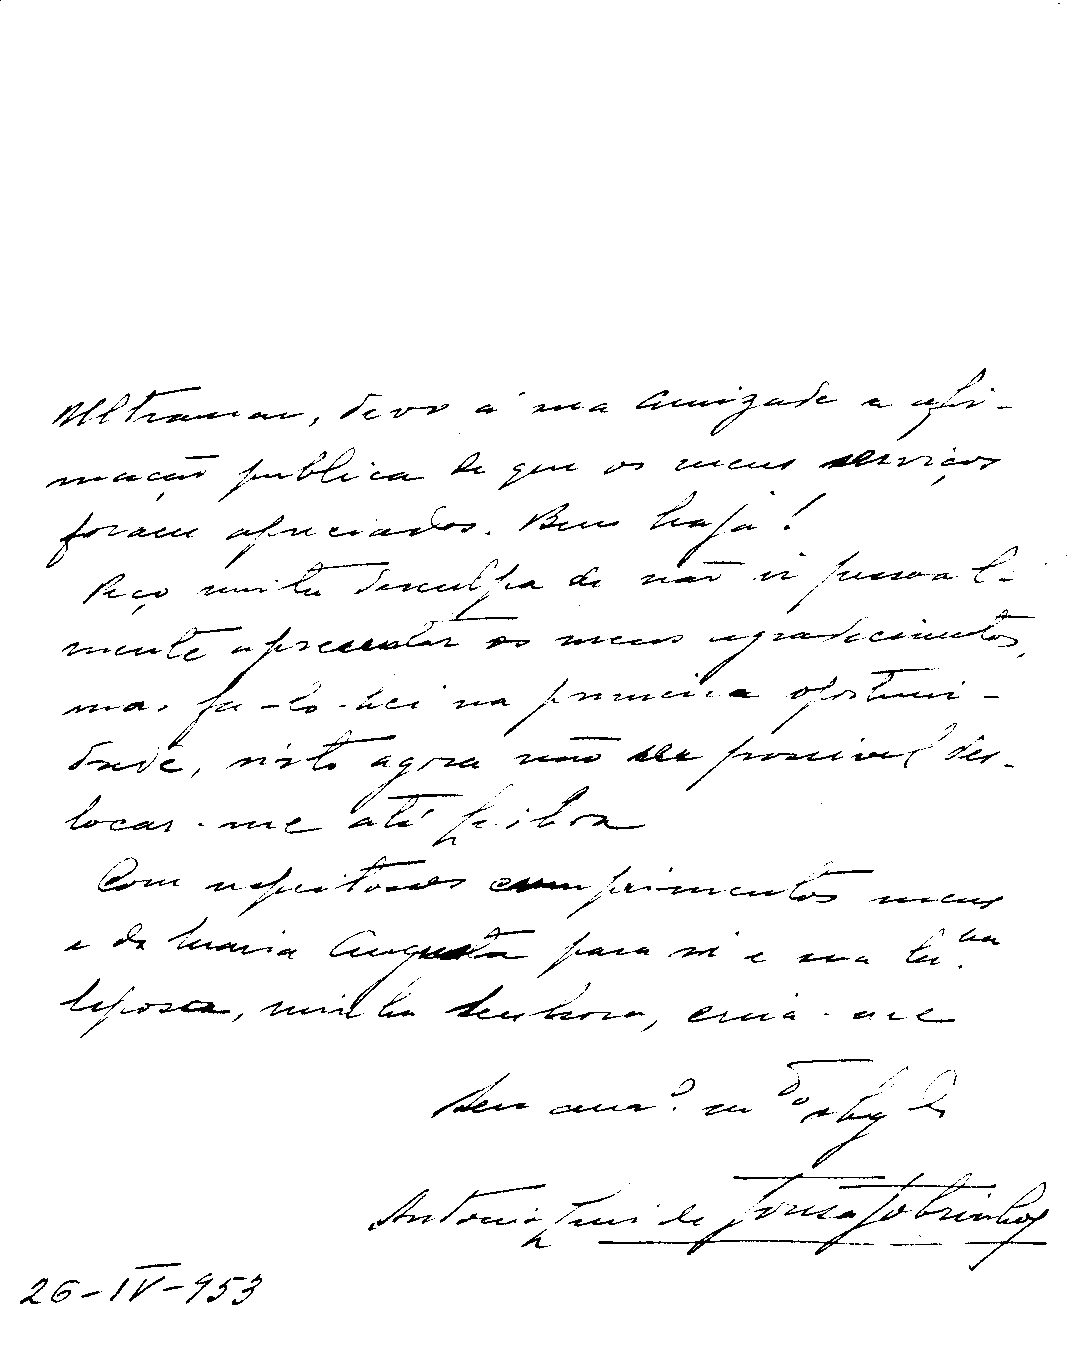 Ultramar, devo á sua amizade a afir-
mação publica de que os meus serviços
foram apreciados. Bem haja!
Peço muita desculpa de não ir pessoal-
mente apresentar os meus agradecimentos,
mas fa-lo-hei na primeira oportuni-
dade, visto agora não ser possivel des-
locar-me até Lisboa
Com respeitosos cumprimentos meus
e da Maria Augusta para si e sua
Esposa, minha Senhora, creia-me
Seu am.º m.to obg.do
Antonio Luis de Sousa Sobrinho
26-IV-953